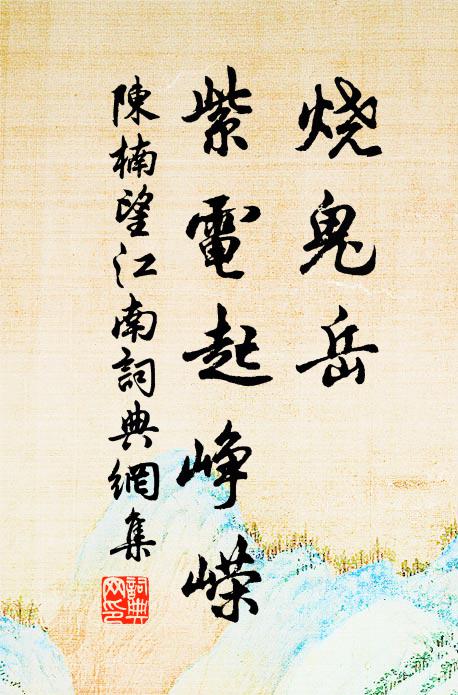 烧鬼岳
紫電起峥嵘
陳楠望江南詞典網集
詞典